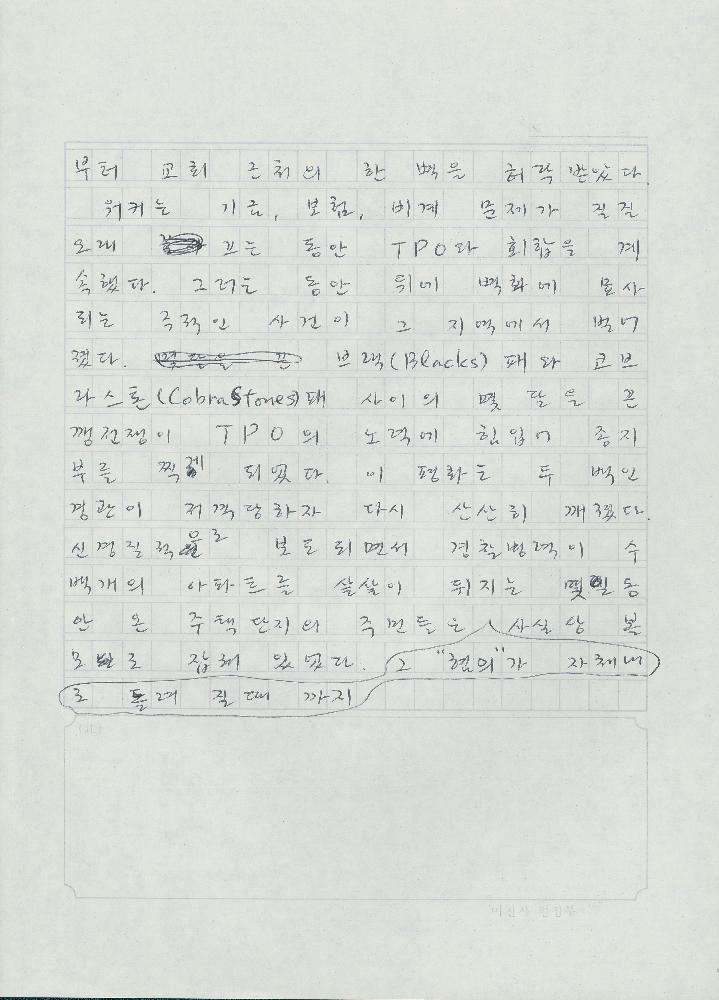 부터 교회 근처의 한 벽을 허락 받았다.
워커는 기금, 보험, 비계 문제가 질질
오래 끄는 동안 TPO와 회합을 계
속했다. 그러는 동안 뒤에 벽화에 묘사
되는 극적인 사건이 그 지역에서 벌어
졌다. 브랙(Blacks)패와 코브
라스톤(CobraStones)패 사이의 몇 달을 끈
깽전쟁이 TPO의 노력에 힘입어 종지
부를 찍게 되었다. 이 평화는 두 백인
경관이 저격당하자 다시 산산히 깨졌다.
신경질적으로 보도되면서 경찰병력이 수
백개의 아파트를 샅샅이 뒤지는 몇일동
안 온 주택단지의 주민들은 사실상 볼
모로 잡혀 있었다. 그 "혐의"가 자체내
로 돌려 질때 까지